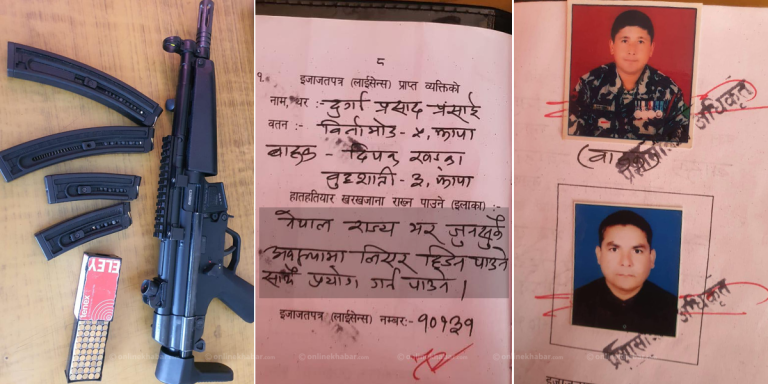 ELEY
tenex
८
१.
इजाजतपत्र (लाईसेन्स) प्राप्त व्यक्तिको
नाम, थर :- दुर्गा प्रसाद प्रसाई
वतन :- विर्तामोड - ५, झापा
बाहक - दिपक खड्का
बुद्धशान्ती - ३, झापा
हातहतियार खरखजाना राख्न पाउने (इलाका) :-
नेपाल राज्य भर जुनसुकै
अवस्थामा लिएर हिडन पाउने
साथै प्रयोग गर्न पाउने।
इजाजतपत्र (लाईसेन्स) नम्बर:- १०१३१
अधिकृत
अधिकृत
onlinekhabar.com
onlinekhabar.com
onlinekhabar.com